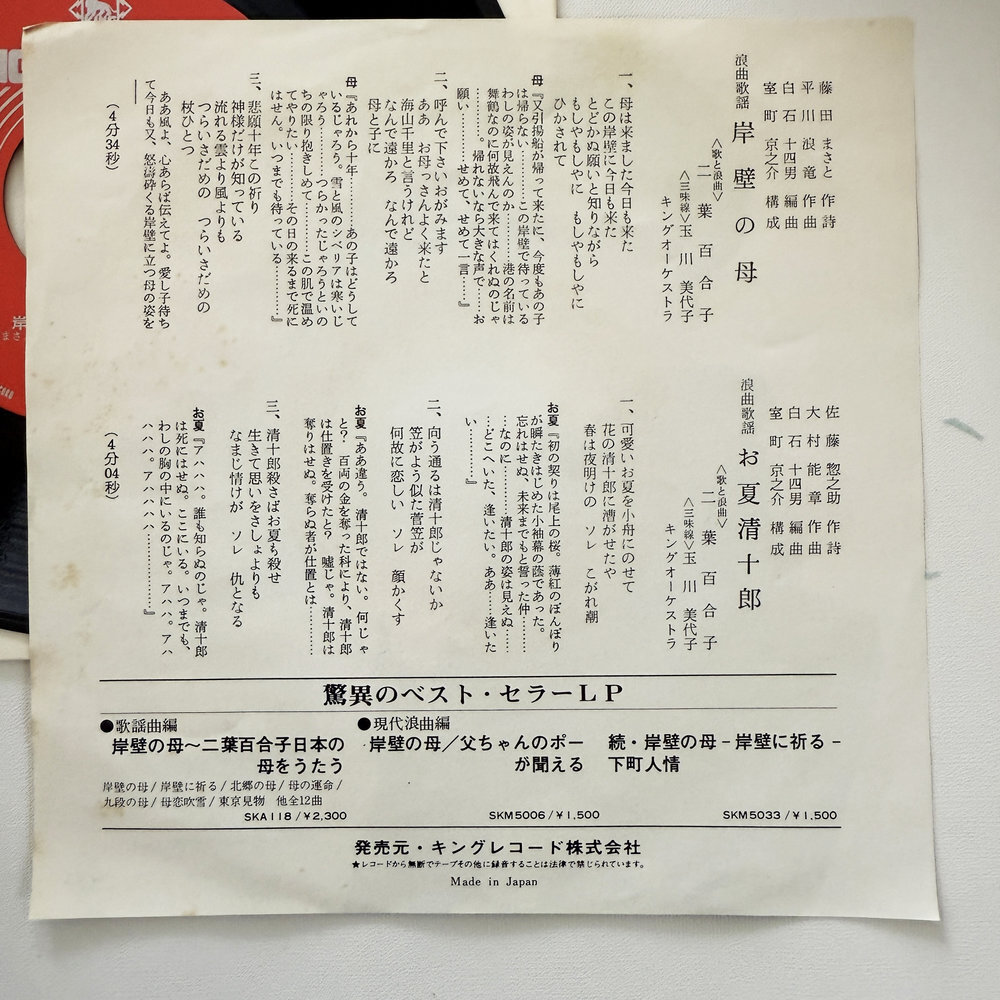 藤田まさと 作詩
平川浪竜 作曲
白石十四男 編曲
室町京之介 構成
浪曲歌謡 岸壁の母
〈歌と浪曲〉二葉百合子
〈三味線〉玉川美代子
キングオーケストラ
一、母は来ました今日も来た
この岸壁に今日も来た
とどかぬ願いと知りながら
もしやもしやに もしやもしやに
ひかされて
母『又引揚船が帰って来たに、今度もあの子
は帰らない………この岸壁で待っている
わしの姿が見えんのか………港の名前は
舞鶴なのに何故飛んで来てはくれぬのじゃ
…………。帰れないなら大きな声で……お
願い………せめて、せめて一言………』
二、呼んで下さいおがみます
ああ お母っさんよく来たと
海山千里と言うけれど
なんで遠かろ なんで遠かろ
母と子に
母『あれから十年………あの子はどうして
いるじゃろう。雪と風のシベリアは寒いじ
ゃろう………つらかったじゃろうといの
ちの限り抱きしめて………この肌で温め
てやりたい………その日の来るまで死に
はせん。いつまでも待っている………』
三、悲願十年この祈り
神様だけが知っている
流れる雲より風よりも
つらいさだめの つらいさだめの
杖ひとつ
ああ風よ、心あらば伝えてよ。愛し子待ち
て今日も又、怒濤砕くる岸壁に立つ母の姿を
(4分34秒)
佐藤惣之助 作詩
大村能章 作曲
白石十四男 編曲
室町京之介 構成
浪曲歌謡 お夏清十郎
〈歌と浪曲〉二葉百合子
〈三味線〉玉川美代子
キングオーケストラ
一、可愛いお夏を小舟にのせて
花の清十郎に漕がせたや
春は夜明けの ソレ こがれ潮
お夏『初の契りは尾上の桜。薄紅のぼんぼり
が瞬たきはじめた小袖幕の蔭であった。
忘れはせぬ、未来までもと誓った仲……
…なのに………清十郎の姿は見えぬ……
…どこへいた、逢いたい。ああ……逢いた
い………』
二、向う通るは清十郎じゃないか
笠がよう似た菅笠が
何故に恋しい ソレ 顔かくす
お夏『ああ違う。清十郎ではない。何じゃ
と? 百両の金を奪った科により、清十郎
は仕置きを受けたと? 嘘じゃ。清十郎は
奪りはせぬ。奪らぬ者が仕置とは…………
三、清十郎殺さばお夏も殺せ
生きて思いをさしょよりも
なまじ情けが ソレ 仇となる
お夏『アハハハ。誰も知らぬのじゃ。清十郎
は死にはせぬ。ここにいる。いつまでも、
わしの胸の中にいるのじゃ。アハハ。アハ
ハハハ。アハハハハハ…………』
(4分04秒)
驚異のベスト・セラーLP
●歌謡曲編
岸壁の母〜二葉百合子日本の
母をうたう
岸壁の母/岸壁に祈る/北郷の母/母の運命/
九段の母/母恋吹雪/東京見物 他全12曲
SKA118/¥2,300
●現代浪曲編
岸壁の母/父ちゃんのポー
が聞える
SKM5006/¥1,500
続・岸壁の母-岸壁に祈る-
下町人情
SKM5033/¥1,500
発売元・キングレコード株式会社
★レコードから無断でテープその他に録音することは法律で禁じられています。
Made in Japan